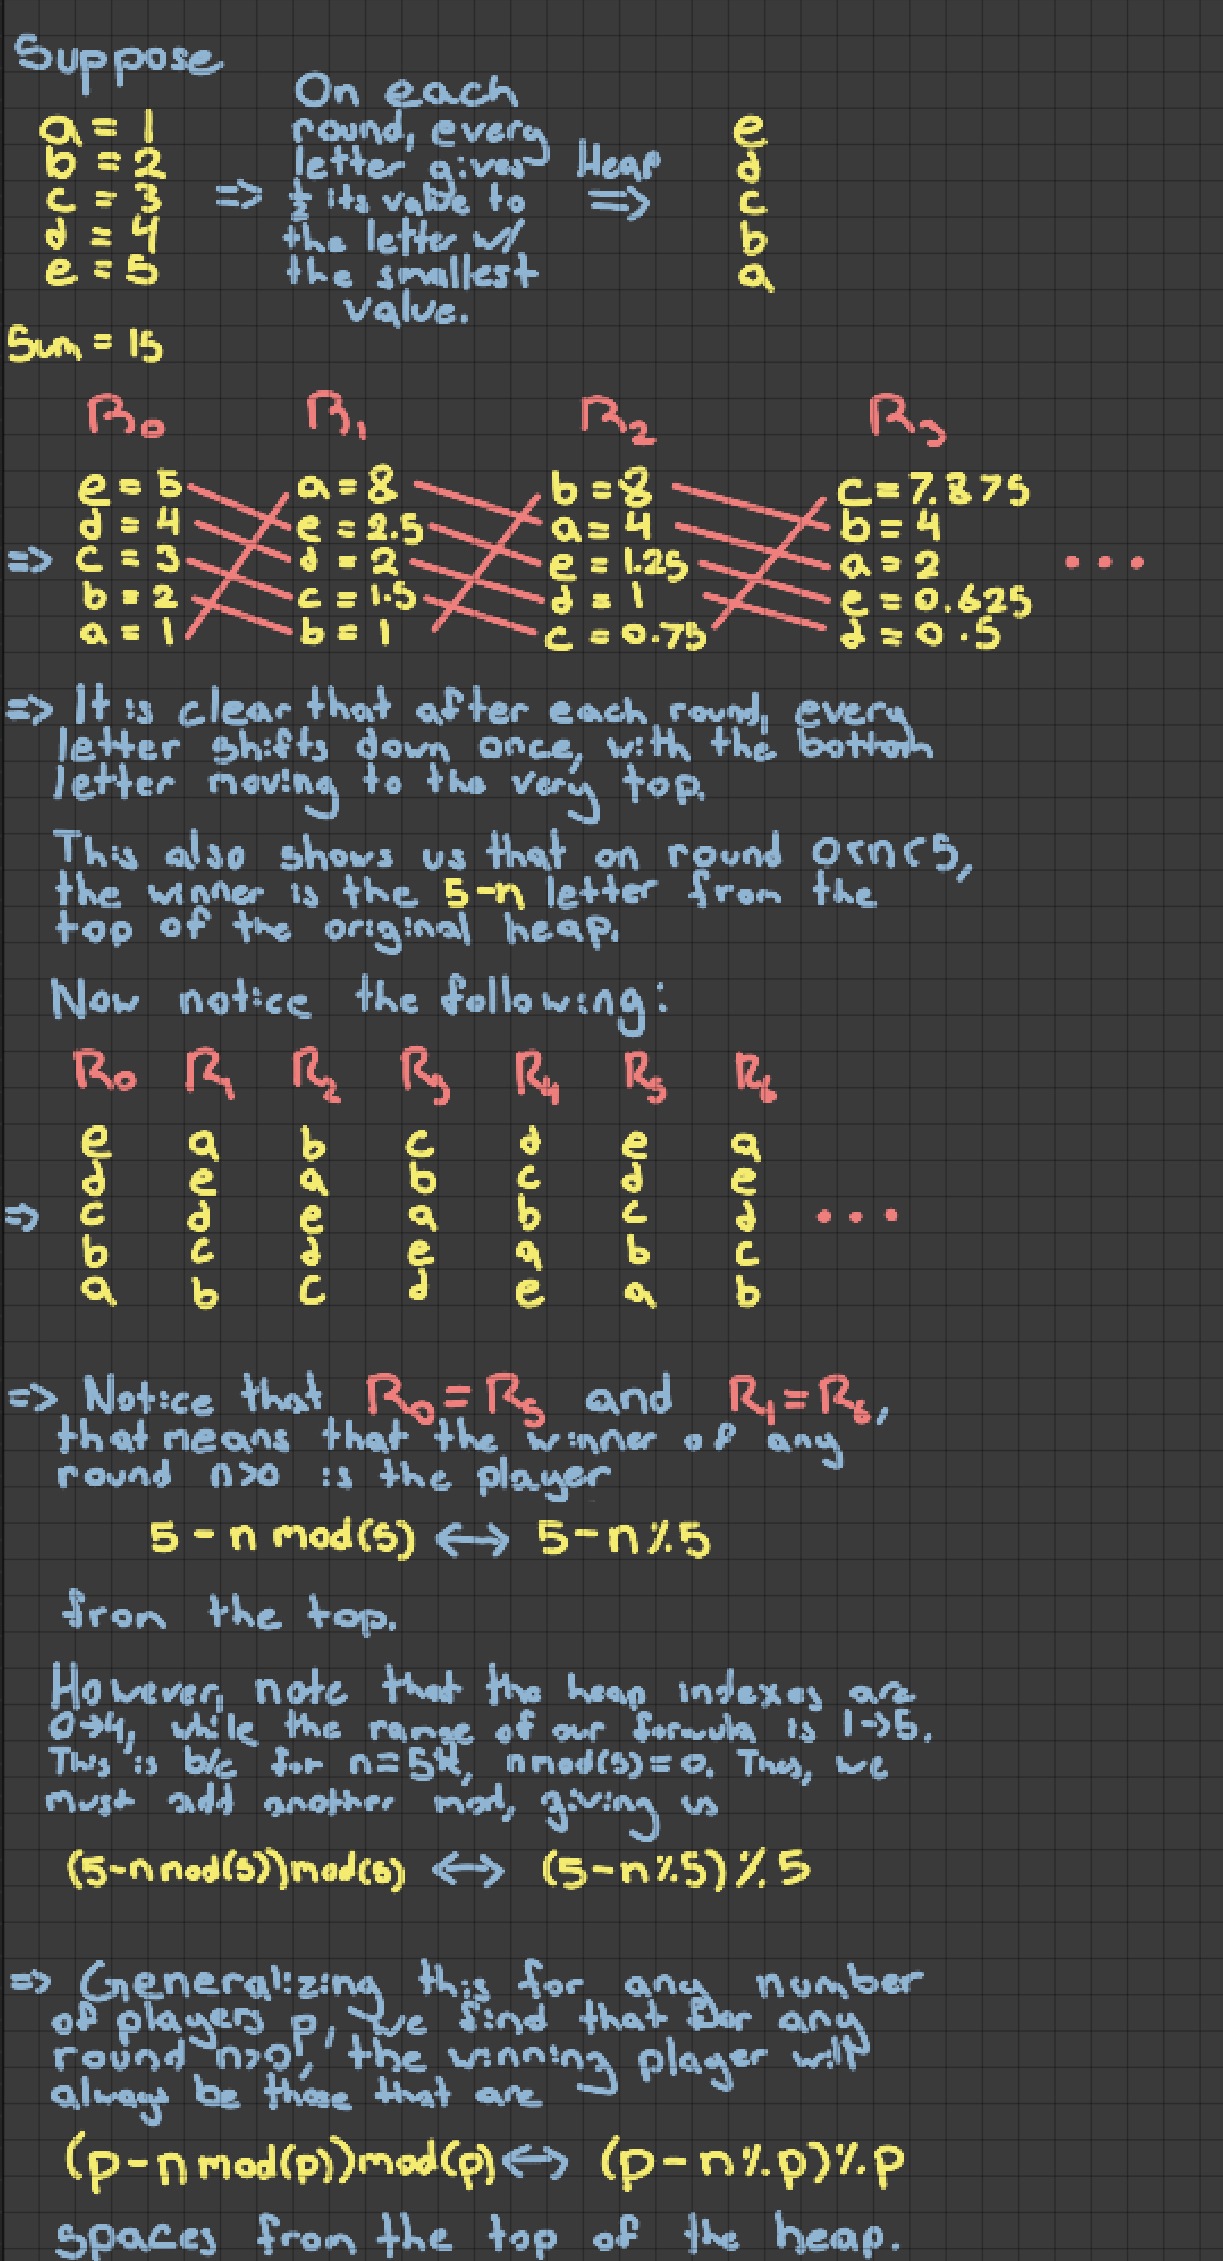 Suppose
a = 1
b = 2
c = 3
d = 4
e = 5
Sum = 15
=>
On each
round, every
letter gives
½ its value to
the letter w/
the smallest
value.
Heap
=>
e
d
c
b
a
R₀ R₁ R₂ R₃
e = 5 a = 8 b = 8 c = 7.875
d = 4 e = 2.5 a = 4 b = 4
=> c = 3 d = 2 e = 1.25 a = 2 ...
b = 2 c = 1.5 d = 1 e = 0.625
a = 1 b = 1 c = 0.75 d = 0.5
=> It is clear that after each round, every
letter shifts down once, with the bottom
letter moving to the very top.
This also shows us that on round 0<n<5,
the winner is the 5-n letter from the
top of the original heap.
Now notice the following:
R₀ R₁ R₂ R₃ R₄ R₅ R₆
e a b c d e a
d e a b c d e
=> c d e a b c d ...
b c d e a b c
a b c d e a b
=> Notice that R₀ = R₅ and R₁ = R₆,
that means that the winner of any
round n>0 is the player
5 - n mod(5) <-> 5 - n % 5
from the top.
However, note that the heap indexes are
0->4, while the range of our formula is 1->5.
This is b/c for n=5k, n mod(5) = 0. Thus, we
must add another mod, giving us
(5-n mod(5))mod(5) <-> (5-n%5)%5
=> Generalizing this for any number
of players p, we find that for any
round n>0, the winning player will
always be those that are
(p-n mod(p))mod(p) <-> (p-n%p)%p
spaces from the top of the heap.